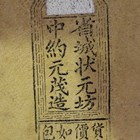 城狀元坊
中約元茂造
貨價如包